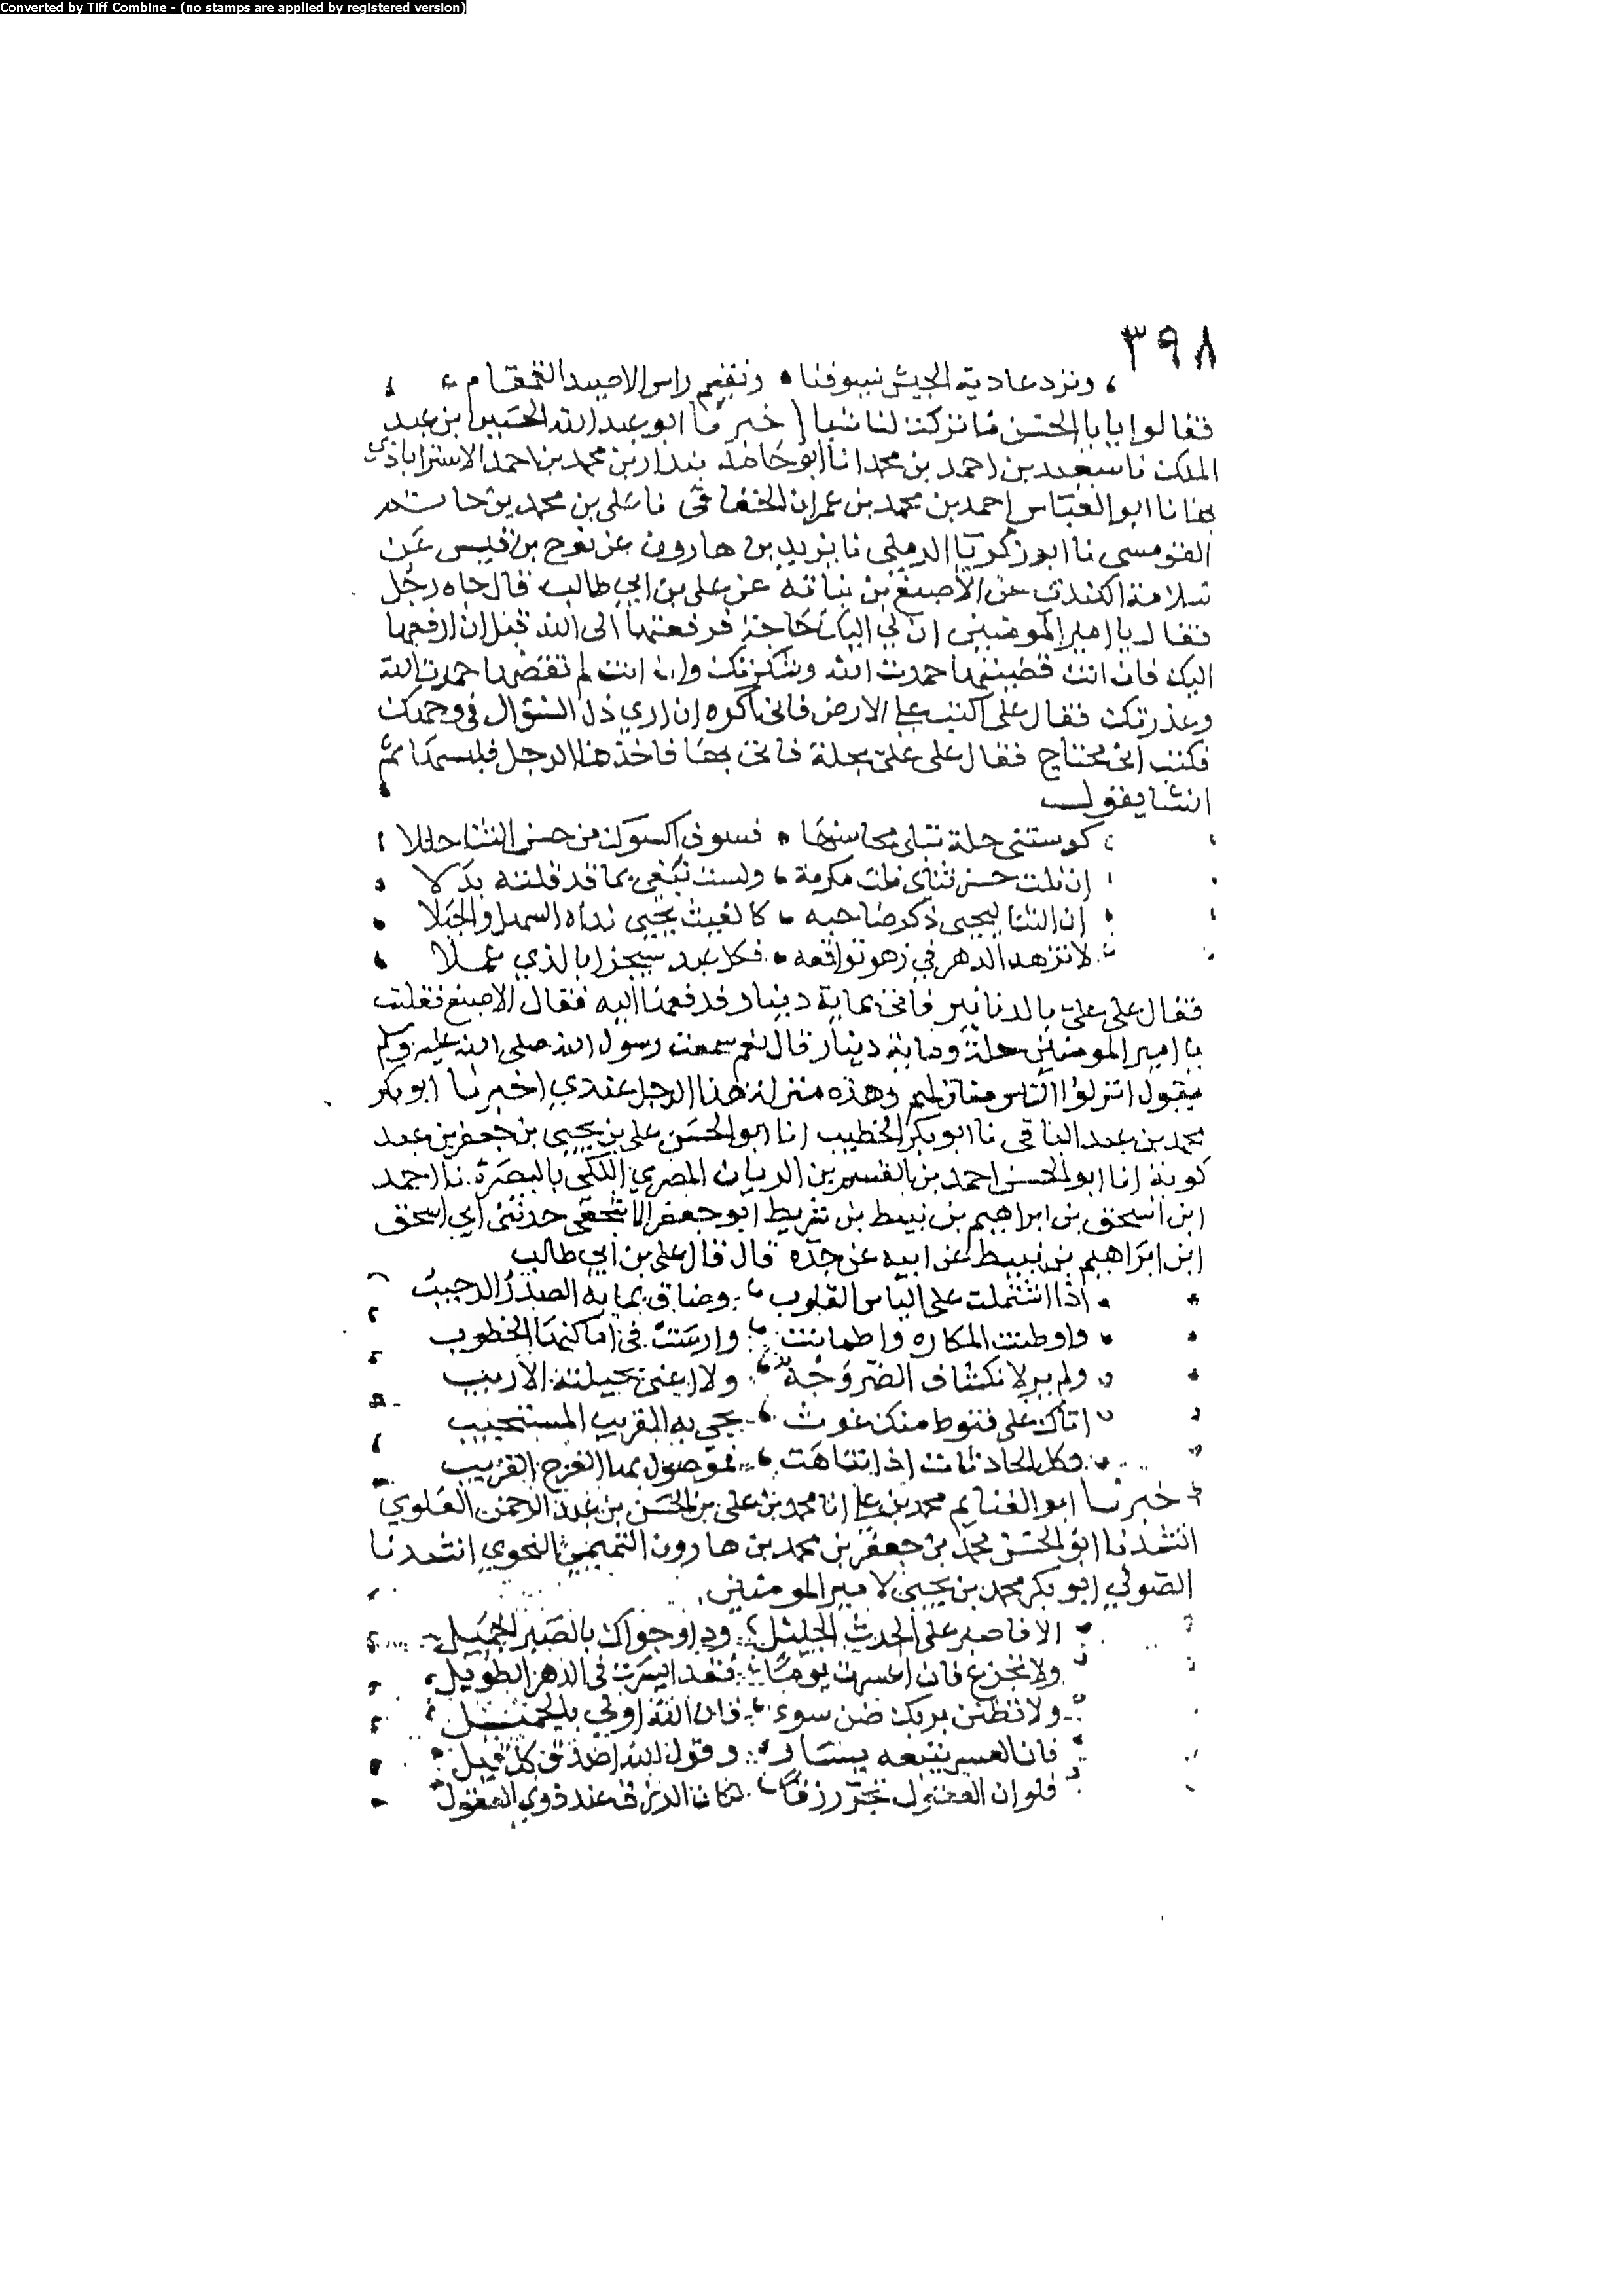 Converted by Tiff Combine - (no stamps are applied by registered version)
٣٩٨
ونرد عادية الجيش بسيوفنا ونقيم راس الاصيد القمقام
فقالوا يابا الحسن ما تركت لنا شيا اخبرنا ابو عبد الله الحسين بن عبد
الملك نا سعيد بن احمد بن محمد انا ابو حامد بندار بن محمد بن احمد الاستراباذي
بها نا ابو العباس احمد بن محمد بن عمران الخفافي نا علي بن محمد بن حاتم
القومسي نا ابو زكريا الرملي نا يزيد بن هارون عن نوح بن قيس عن
سلامة الكندي عن الاصبغ بن نباته عن علي بن ابي طالب قال جاه رجل
فقال يا امير المومنين ان لي اليك حاجة فرفعتها الى الله قبل ان ارفعها
اليك فان انت قضيتها حمدت الله وشكرتك وان انت لم تقضها حمدت الله
وعذرتك فقال علي اكتب على الارض فاني اكره ان اري ذل السؤال في وجهك
فكتب اني محتاج فقال علي علي بحلة فاتي بها فاخذها الرجل فلبسها ثم
انشا يقول
كوستني حلة تبلى محاسنها فسوف اكسوك من حسن الثنا حللا
ان نلت حسن ثناي نلت مكرمة ولست تبغي بما قد قلته بدلا
ان الثنا ليحيى ذكر صاحبه كالغيث يحيى نداه السهل والجبلا
لا تزهد الدهر في زهو تواقعه فكل عبد سيجزا بالذي عملا
فقال علي علي بالدنانير فاتي بماية دينار فدفعها اليه فقال الاصبغ فقلت
يا امير المومنين حلة وماية دينار قال نعم سمعت رسول الله صلى الله عليه وسلم
يقول انزلوا الناس منازلهم وهذه منزلة هذا الرجل عندي اخبرنا ابو بكر
محمد بن عبد الباقي نا ابو بكر الخطيب انا ابو الحسن علي بن يحيى بن جعفر بن عبد
كويه انا ابو الحسن احمد بن القسم بن الريان المصري اللكي بالبصرة نا احمد
ابن اسحق بن ابراهيم بن نبيط بن شريط ابو جعفر الاشجعي حدثني ابي اسحق
ابن ابراهيم بن نبيط عن ابيه عن جده قال قال علي بن ابي طالب
اذا اشتملت على الياس القلوب وضاق بما به الصدر الرحيب
واوطنت المكاره واطمانت وارست في اماكنها الخطوب
ولم ير لانكشاف الضر وجه ولا اغنى بحيلته الاريب
اتاك على قنوط منك غوث يجي به القريب المستجيب
وكل الحادثات اذا تناهت فموصول بها الفرج القريب
اخبرنا ابو الغنايم محمد بن علي انا محمد بن علي بن الحسن بن عبد الرحمن العلوي
انشدنا ابو الحسن محمد بن جعفر بن محمد بن هارون التميمي النحوي انشدنا
الصولي ابو بكر محمد بن يحيى لامير المومنين
الا فاصبر على الحدث الجليل وداو جواك بالصبر الجميل
ولا تجزع فان اعسرت يوما فقد ايسرت في الدهر الطويل
ولا تظنن بربك ظن سوء فان الله اولى بالجميل
فان العسر يتبعه يسار وقول الله اصدق كل قيل
فلو ان العقول تجر رزقا لكان الرزق عند ذوي العقول